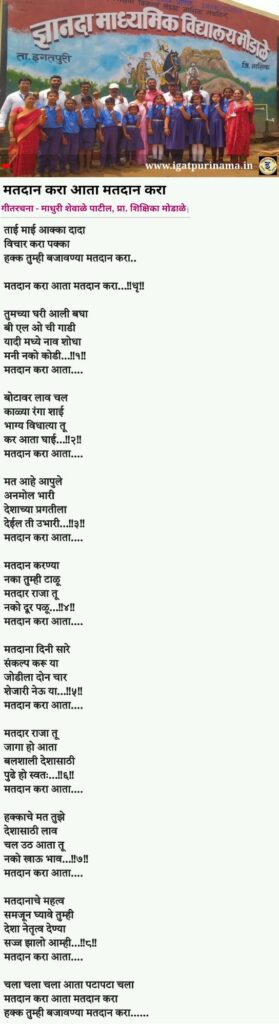 ज्ञानदा माध्यमिक विद्यालय मोडाळे
ता.इगतपुरी
जि. नाशिक
www.igatpurinama.in
मतदान करा आता मतदान करा
गीतरचना - माधुरी शेवाळे पाटील, प्रा. शिक्षिका मोडाळे
ताई माई आक्का दादा
विचार करा पक्का
हक्क तुम्ही बजावण्या मतदान करा..
मतदान करा आता मतदान करा...!!धृ!!
तुमच्या घरी आली बघा
बी एल ओ ची गाडी
यादी मध्ये नाव शोधा
मनी नको कोडी...!!१!!
मतदान करा आता....
बोटावर लाव चल
काळ्या रंगा शाई
भाग्य विधात्या तू
कर आता घाई...!!२!!
मतदान करा आता....
मत आहे आपुले
अनमोल भारी
देशाच्या प्रगतीला
देईल ती उभारी...!!३!!
मतदान करा आता....
मतदान करण्या
नका तुम्ही टाळू
मतदार राजा तू
नको दूर पळू...!!४!!
मतदान करा आता....
मतदाना दिनी सारे
संकल्प करू या
जोडीला दोन चार
शेजारी नेऊ या...!!५!!
मतदान करा आता....
मतदार राजा तू
जागा हो आता
बलशाली देशासाठी
पुढे हो स्वतः...!!६!!
मतदान करा आता....
हक्काचे मत तुझे
देशासाठी लाव
चल उठ आता तू
नको खाऊ भाव...!!७!!
मतदान करा आता....
मतदानाचे महत्व
समजून घ्यावे तुम्ही
देशा नेतृत्व देण्या
सज्ज झालो आम्ही...!!८!!
मतदान करा आता....
चला चला चला आता पटापटा चला
मतदान करा आता मतदान करा
हक्क तुम्ही बजावण्या मतदान करा......